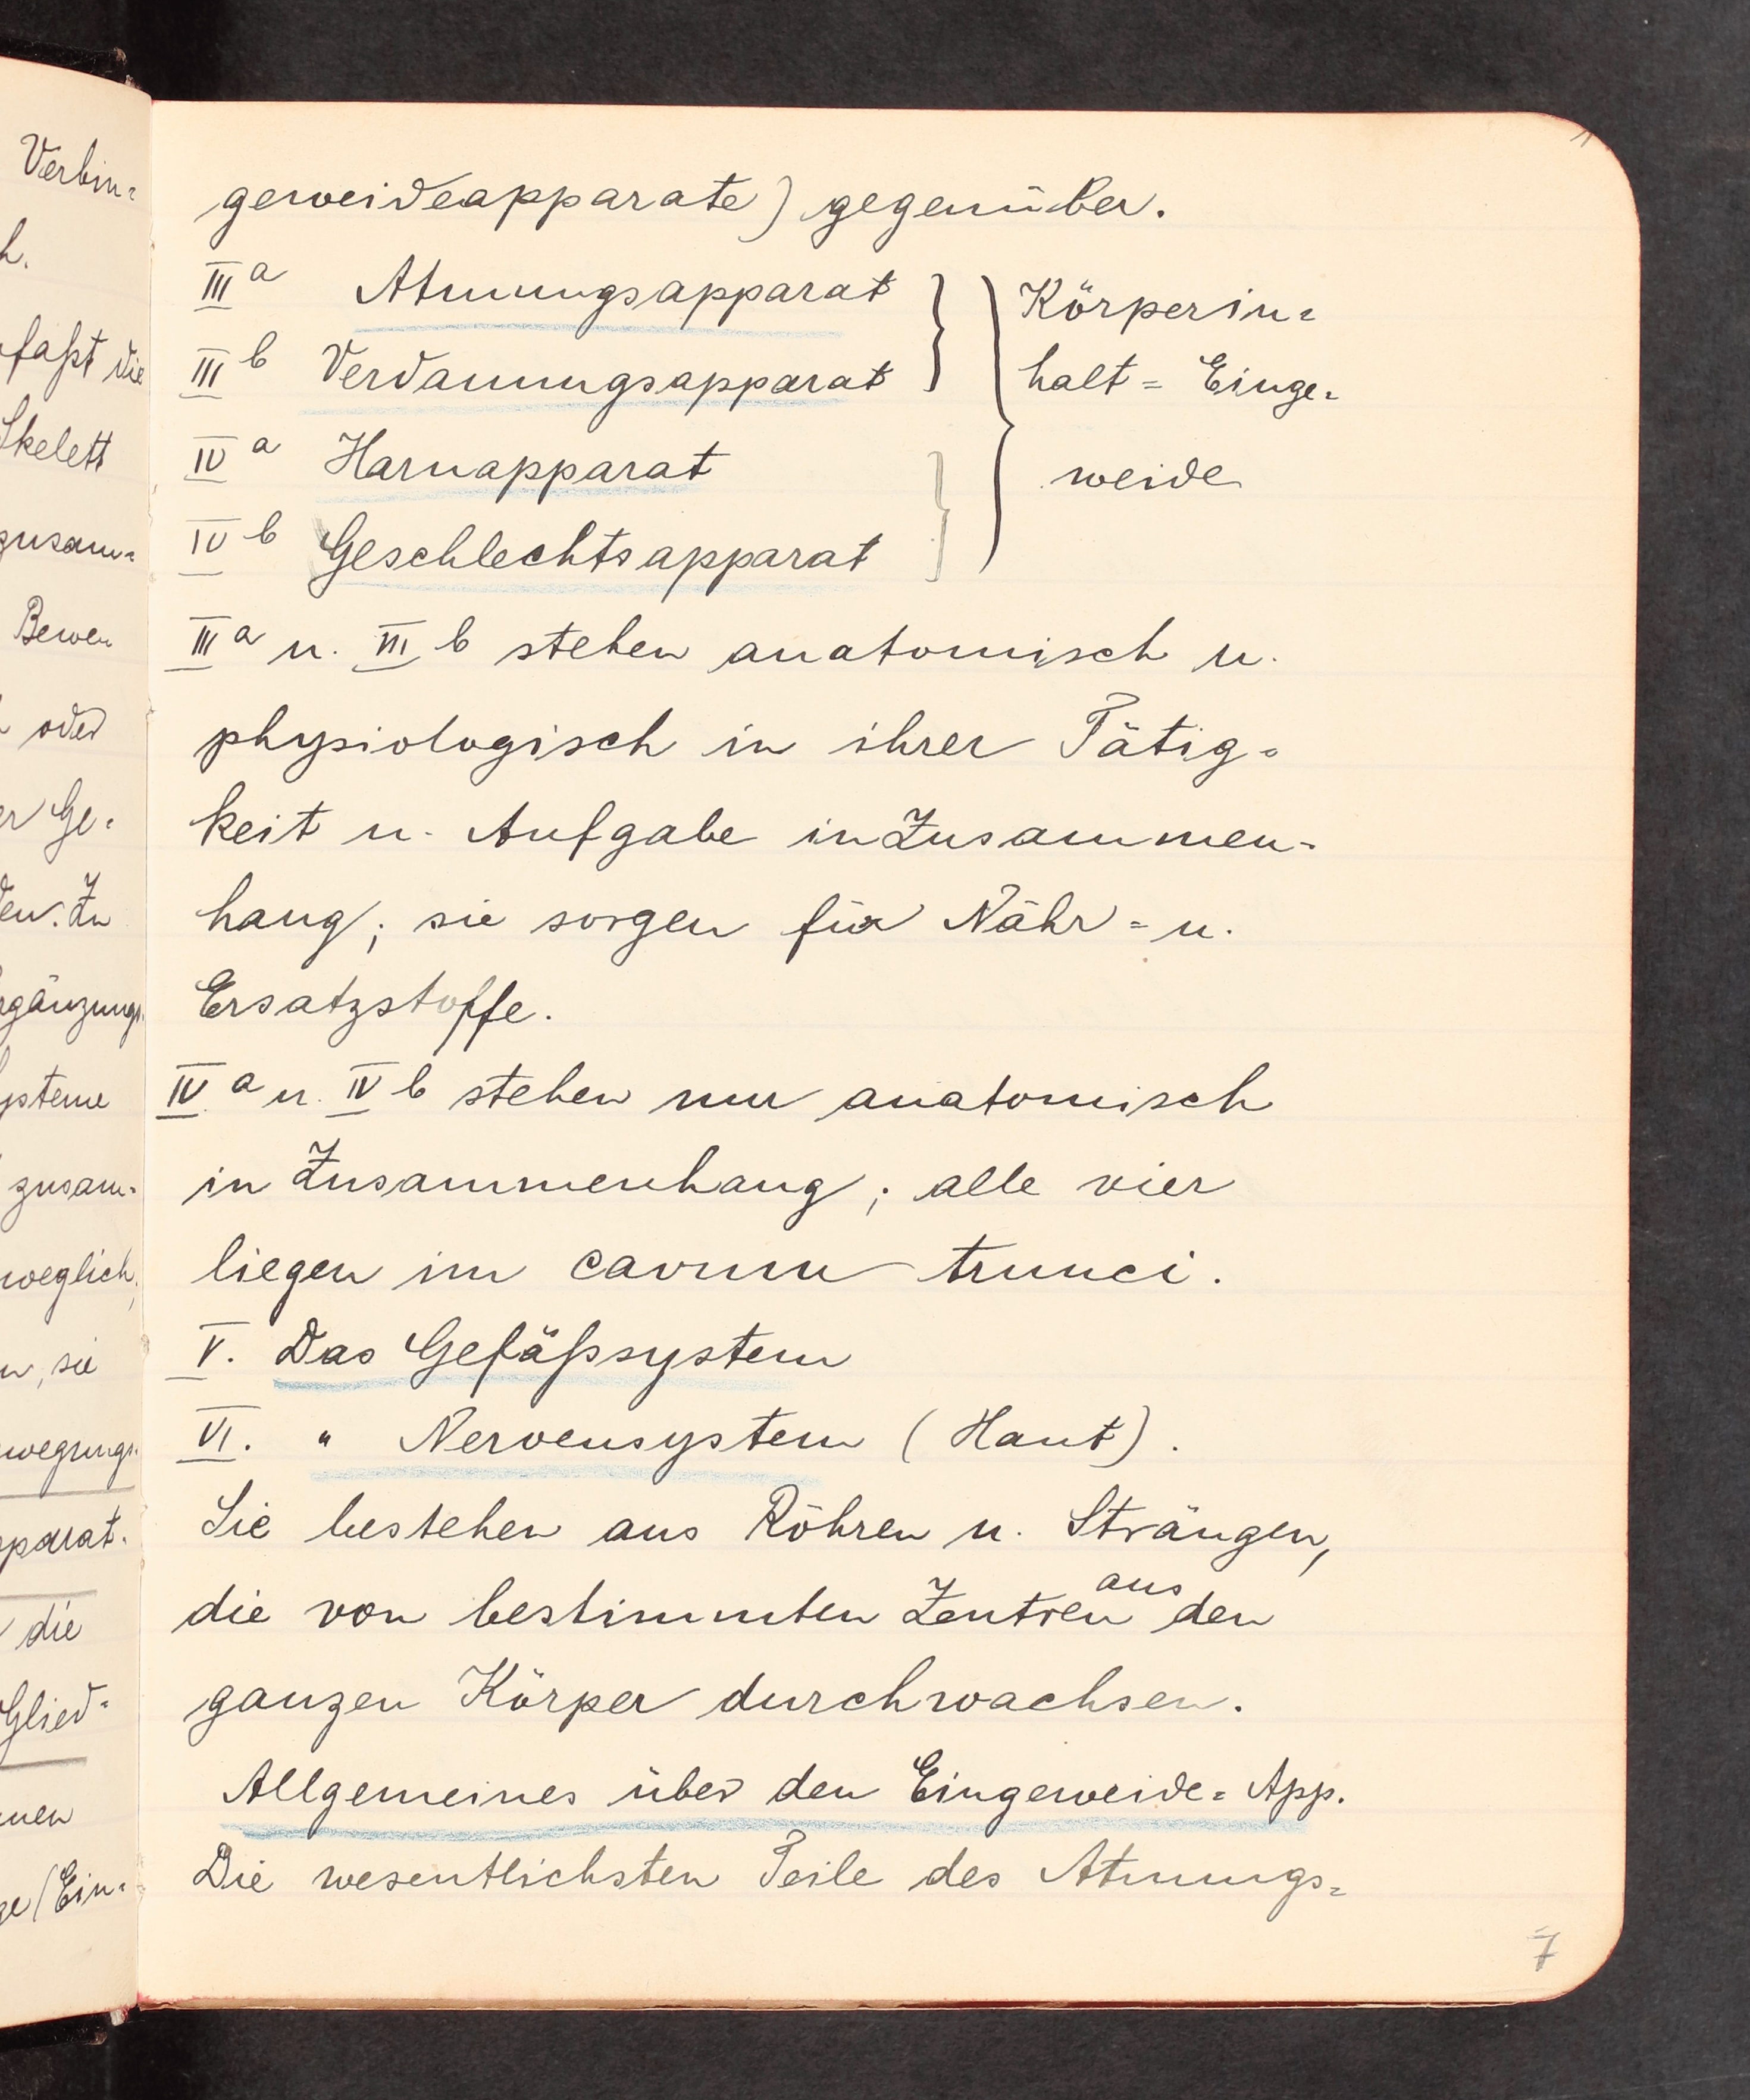 Verbin=
h.
faßt die
Skelett
zusam=
Bewe
oder
er Ge=
den. Zu
rgänzungs
ysteme
zusam=
weglich,
n, sie
wegungs=
pparat.
die
Glied=
nen
ge (Ein=
geweideapparate) gegenüber.
III a Atmungsapparat } } Körperin=
III b Verdauungsapparat halt = Einge=
IV a Harnapparat } weide
IV b Geschlechtsapparat
III a u. III b stehen anatomisch u.
physiologisch in ihrer Tätig=
keit u. Aufgabe in Zusammen=
hang; sie sorgen für Nähr= u.
Ersatzstoffe.
IV a u. IV b stehen nur anatomisch
in Zusammenhang; alle vier
liegen im cavum trunci.
V. Das Gefäßsystem
VI. " Nervensystem (Haut).
Sie bestehen aus Röhren u. Strängen,
die von bestimmten Zentren aus den
ganzen Körper durchwachsen.
Allgemeines über den Eingeweide= App.
Die wesentlichsten Teile des Atmungs=
7